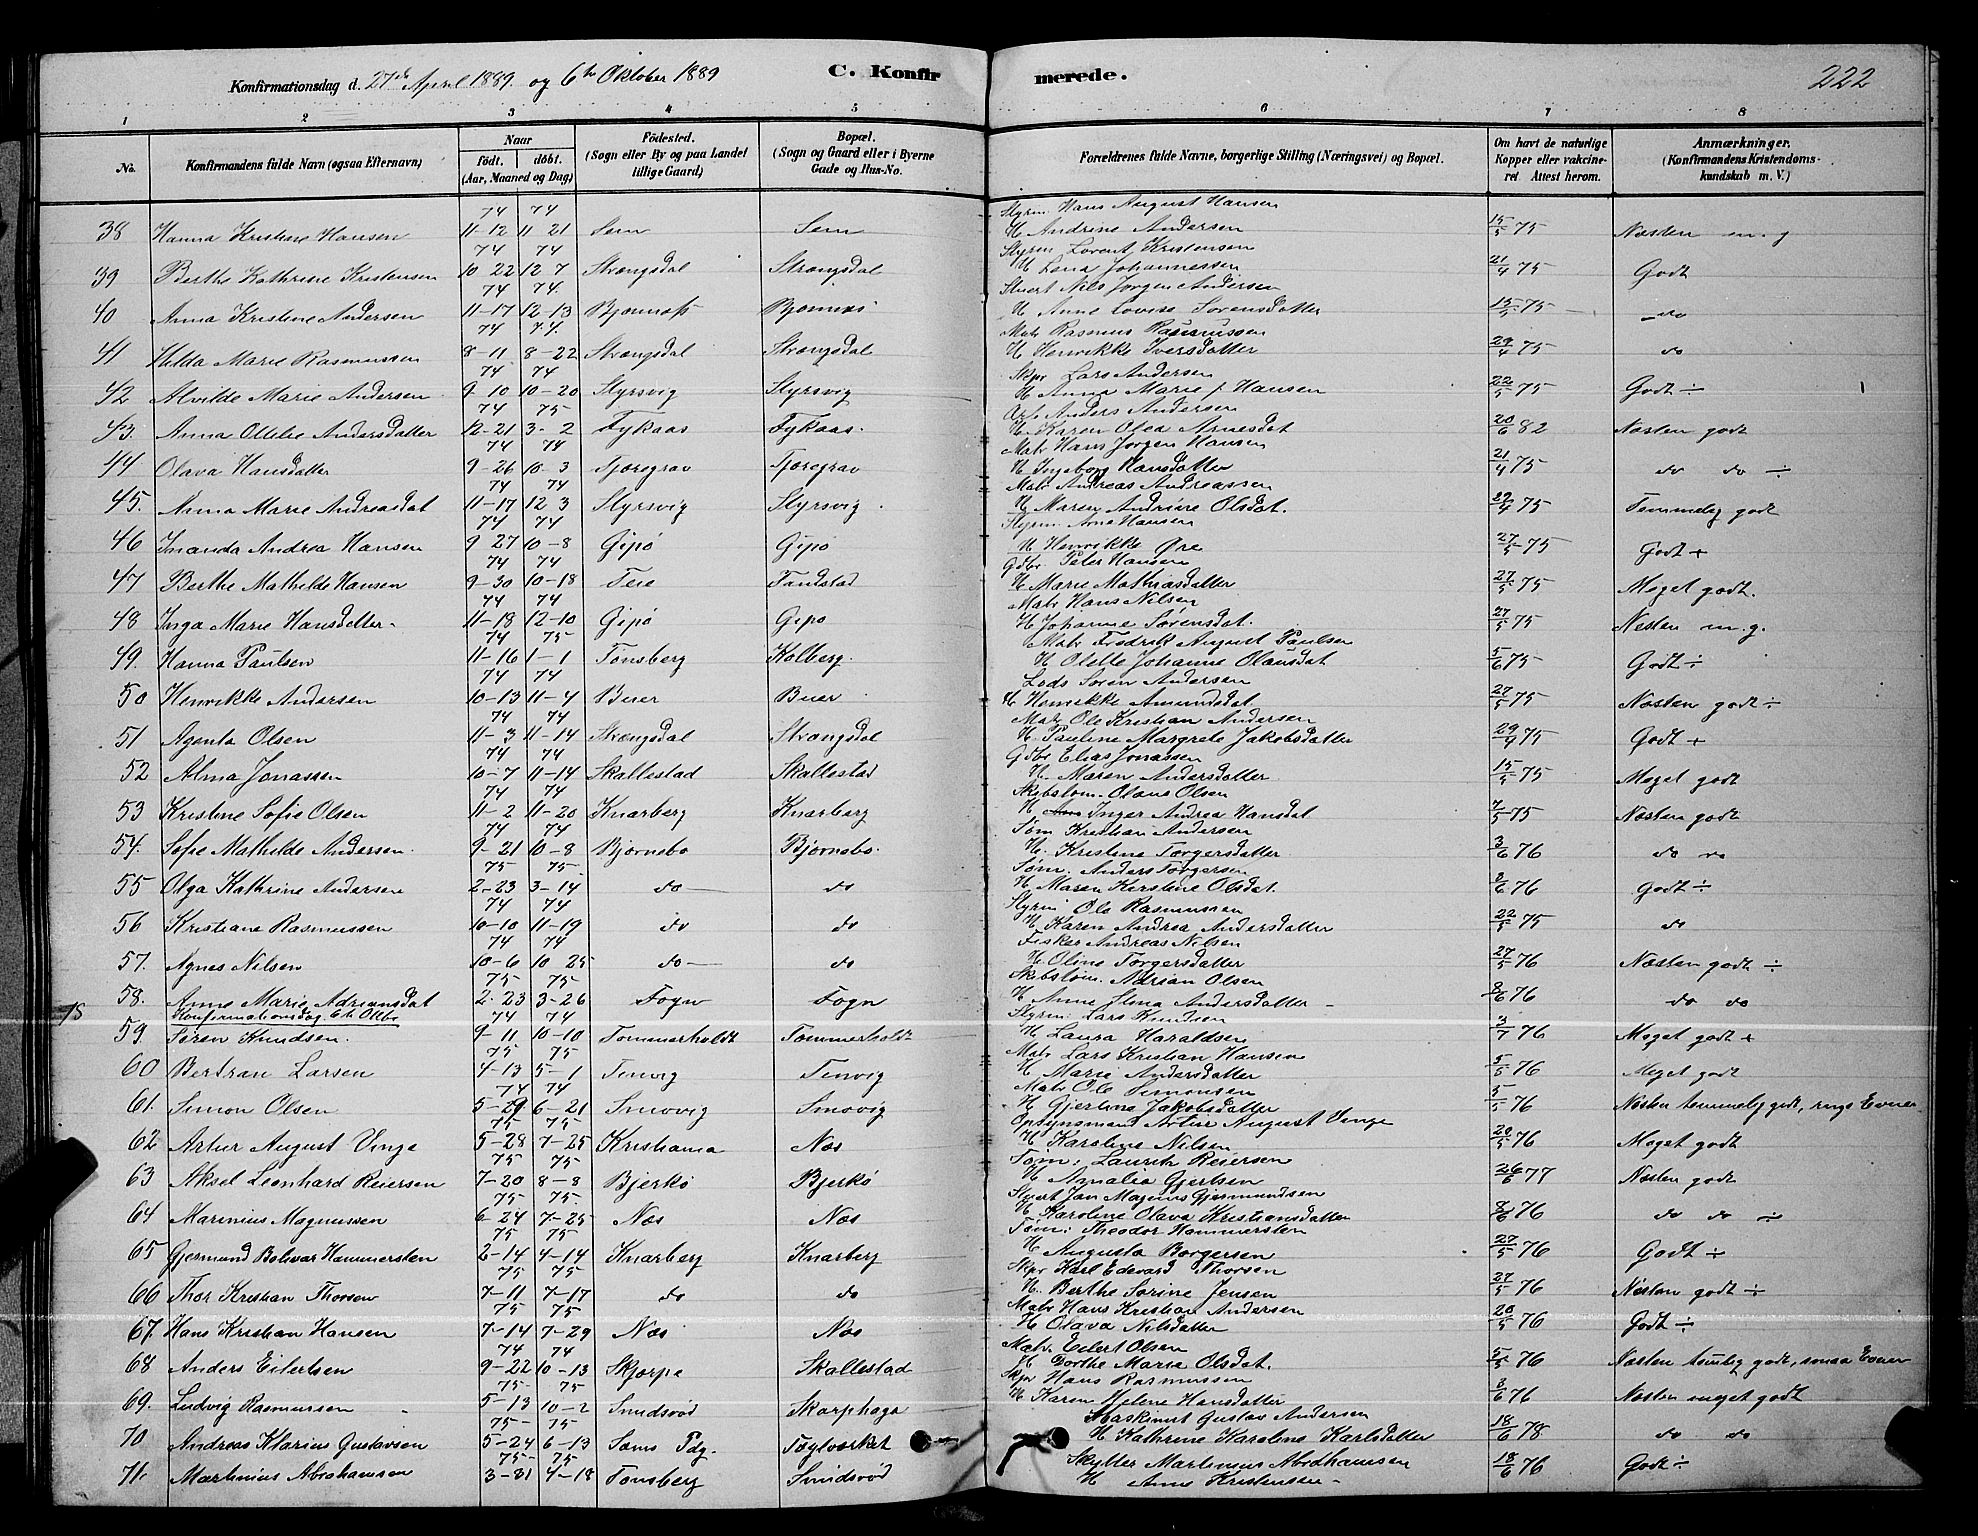 Konfirmationsdag d. 27de April 1889. og 6te Oktober 1889 C. Konfirmerede. 222
1 2 3 4 5 6 7 8
No. Konfirmandens fulde Navn (ogsaa Efternavn) Naar født. døbt. (Aar, Maaned og Dag) Födested. (Sogn eller By og paa Landet tillige Gaard) Bopæl. (Sogn og Gaard eller i Byerne Gade og Hus-No. Forældrenes fulde Navne, borgerlige Stilling (Næringsvei) og Bopæl. Om havt de naturlige Kopper eller vakcineret. Attest herom. Anmærkninger. (Konfirmandens Kristendomskundskab m. V.)
74 74 Styrm. Hans August Hansen
38 Hanna Kristine Hansen 11-12 11 21 Sem Sem H Andrine Andersen 15/5 75 Næsten m. g
74 74 Styrm Lorent Kristensen
39 Berthe Kathrine Kristensen 10 22 12 7 Strængsdal Strængsdal H Lena Johannessen 21/4 75 Godt
74 74. Stuert Nils Jörgen Andersen
40 Anna Kristine Andersen 11-17 12-13 Bjonnæs Bjonnæs H Anne Lovise Sorensdatter 15/5 75 do
74 74. Matr Rasmus Rasmussen
41 Hilda Marie Rasmussen 8-11 8-22 Strængsdal Strængsdal H Henrikke Iversdatter 29/4 75 do
74 74 Skpr Lars Andersen
42 Alvilde Marie Andersen 9-10 10-20 Styrsvig Styrsvig H Anna Marie f Hansen 22/5 75 Godt ÷
74 75 Arb. Anders Andersen
43. Anna Ottilie Andersdatter 12-21 3-2 Fykaas Fykaas. H. Karen Olea Arnesdat 20/6 82 Næsten godt
74 74 Matr Hans Jorgen Hansen
44 Olava Hansdatter 9-26 10-3 Tjæregrav Tjæregrav H Ingeborg Hansdatter 21/4 75 do do ÷
74 74 Matr Andreas Andreassen
45. Anna Marie Andreasdat 11-17 12 3 Styrsvig Styrsvig H Maren Andrine Olsdat. 29/4 75 Temmelig godt
74 74 Styrm. Arne Hansen
46 Inanda Andrea Hansen 9 27 10-8 Gipö Gipö H Henrikke Øre 27/5 75 Godt +
74 74 Gdbr Peter Hansen
47 Berthe Mathilde Hansen 9-30 10-18 Teie Tandstad H Marie Mathiasdatter 27/5 75 Meget godt.
74 74 Matr Hans Nilsen
48 Inga Marie Hansdatter 11-18 12-10 Gipö Gipo H Johanne Sørensdat. 27/5 75 Næsten m. g.
74 75 Matr Fredrik August Paulsen
49. Hanna Paulsen 11-16 1-1 Tonsberg Kolberg. H Olette Johanne Olausdat 5/6 75 Godt ÷
74 74 Lods Soren Andersen
50 Henrikke Andersen 10-13 11-4 Buer Buer H Henrikke Amundsdat 27/5 75 Næsten godt ÷
74 74 Matr Ole Kristian Andersen
51 Agenta Olsen 11-3 11-14 Strængsdal Strangsdal H. Pauline Margrete Jakobsdatter 29/4 75 Godt +
74 74 Gdbr Elias Jonassen
52 Alma Jonassen 10-7 11-14 Skallestad Skallestad H. Maren Andersdatter 15/5 75 Meget godt
74 74 Skibstom. Olaus Olsen
53 Kristine Sofie Olsen 11-2 11-20 Knarberg Knarberg H Inger Andrea Hansdat 7/5 75 Næsten godt
74 74 Tøm Kristian Andersen
54. Sofie Mathilde Andersen. 9-21 10-8 Bjørnebo Bjørnebo. H. Kristine Torgersdatter 3/6 76 do do
75 75. Tøm. Anders Torgersen
55 Olga Kathrine Andersen 2-23 3-14 do do H Maren Kirstine Olsdat. 8/6 76 godt ÷
74 74 Styrm Ole Rasmussen
56 Kristiane Rasmussen 10-10 11-19 do do H. Karen Andrea Andersdatter 22/5 75 do
74 74 Fisker Andreas Nilsen
57. Agnes Nilsen 10-6 10 25 do do H Oline Torgersdatter 27/5 76 Næsten godt ÷
75 75. Skibstom. Adrian Olsen
58. Anne Marie Adriansdat 2-23 3-26 Fogn Fogn H Anne Stina Andersdatter 8/6 76 do do
Konfirmationsdag 6te Oktbr 74 74 Styrm: Lars Knudsen
59. Søren Knudsen. 9-11 10-10 Tommerholdt Tommerholdt H Laura Haraldsen 3/7 76 Meget godt +
75 75 Matr Lars Kristian Hansen
60 Bertran Larsen 4-13 5-1 Tenvig Tenvig H Marie Andersdatter 5/5 76 Meget godt
74 74 Matr. Ole Simonsen
61. Simon Olsen 5-29 6-21 Smovig Smovig H Gjertine Jakobsdatter 5/5 76 Næsten temmelig godt, ringe Evner
75 75. Opsynsmand Artur August Vinge
62 Artur August Vinge 5-28 7-25 Kristiania Næs H Karoline Nilsen 20/5 76 Meget godt
75 75 Tøm: Lauritz Reiersen
63 Aksel Leonhard Reiersen 7-20 8-8 Bjerkö Bjerkö H Amalia Gjertsen 26/6 77 Næsten godt
75 75 Styert Jan Magnus Gjermundsen
64 Marinius Magnussen 6-24 7-25 Næs Næs H Karoline Olava Kristiansdatter 8/6 76 do do ÷
75 75 Tøm: Theodor Hammersten
65 Gjermund Bolivar Hammersten 2-14 4-14 Knarberg Knarberg H Augusta Borgersen 27/5 76 Godt ÷
75 75 Skpr Karl Edevard Thorsen
66 Thor Kristian Thorsen 7-11 7-17 do do H. Berthe Sorine Jensen 27/5 76 Næsten godt ÷
75 75 Matr Hans Kristian Andersen
67. Hans Kristian Hansen 7-14 7-29 Næs Næs H Olava Nilsdatter 20/5 76 Godt ÷
74 74 Matr. Eilert Olsen
68 Anders Eilertsen 9-22 10-13 Skjærpe Skallestad H Dorthe Maria Olsdat. 5/5 76 Næsten temlig godt, smaa Evner
75- 75 Skpr Hans Rasmussen
69. Ludvig Rasmussen 5-13 10-2 Smidsrød Skarphaga H Karen Helene Hansdatter 3/6 76 Næsten meget godt
75- 75 Maskinist Gustav Andersen
70 Andreas Klarius Gustavsen 5-24 6-13 Sæms Pdg. Teglværket H Kathrine Karoline Karlsdatter 18/6 78 do do
75- 75 Skytter Martinius Abrahamsen
71. Martinius Abrahamsen 3-31 4-18 Tonsberg Smidsrød H Anne Kristensen 18/6 76 Godt ÷